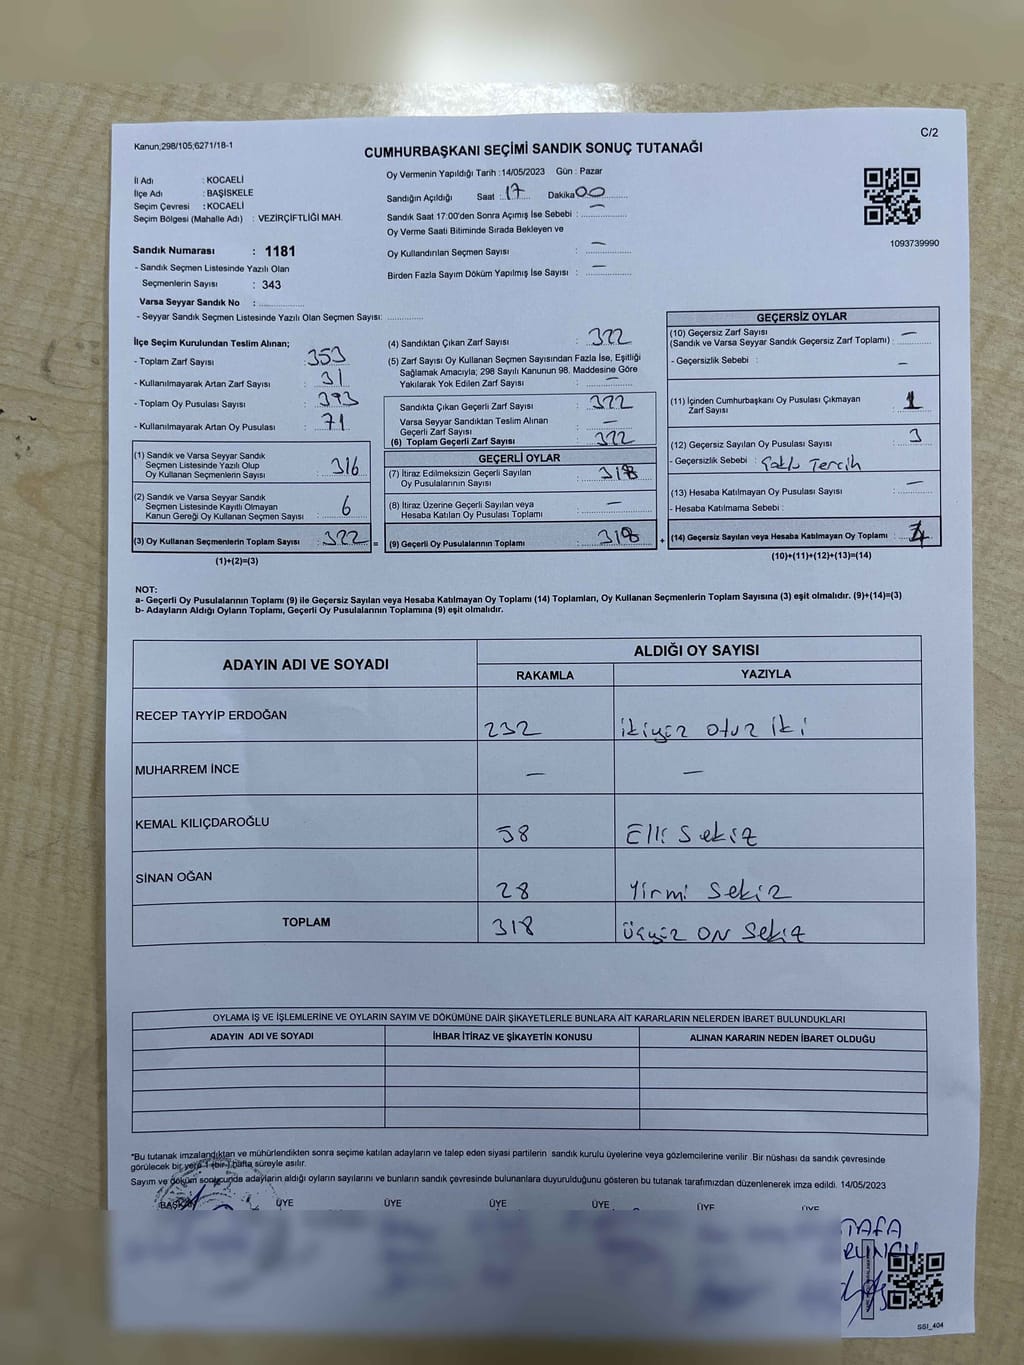 C/2
Kanun;298/105;6271/18-1
CUMHURBAŞKANI SEÇİMİ SANDIK SONUÇ TUTANAĞI
İl Adı : KOCAELİ
İlçe Adı : BAŞİSKELE
Seçim Çevresi : KOCAELİ
Seçim Bölgesi (Mahalle Adı) : VEZİRÇİFTLİĞİ MAH.
Sandık Numarası : 1181
- Sandık Seçmen Listesinde Yazılı Olan
Seçmenlerin Sayısı : 343
Varsa Seyyar Sandık No : ............
- Seyyar Sandık Seçmen Listesinde Yazılı Olan Seçmen Sayısı: ............
Oy Vermenin Yapıldığı Tarih :14/05/2023 Gün : Pazar
Sandığın Açıldığı Saat : 17 Dakika 00
Sandık Saat 17:00'den Sonra Açımış İse Sebebi : —
Oy Verme Saati Bitiminde Sırada Bekleyen ve
Oy Kullandırılan Seçmen Sayısı : —
Birden Fazla Sayım Döküm Yapılmış İse Sayısı : —
1093739990
İlçe Seçim Kurulundan Teslim Alınan;
- Toplam Zarf Sayısı : 353
- Kullanılmayarak Artan Zarf Sayısı : 31
- Toplam Oy Pusulası Sayısı : 393
- Kullanılmayarak Artan Oy Pusulası : 71
(1) Sandık ve Varsa Seyyar Sandık
Seçmen Listesinde Yazılı Olup
Oy Kullanan Seçmenlerin Sayısı : 316
(2) Sandık ve Varsa Seyyar Sandık
Seçmen Listesinde Kayıtlı Olmayan
Kanun Gereği Oy Kullanan Seçmen Sayısı : 6
(3) Oy Kullanan Seçmenlerin Toplam Sayısı : 322 =
(1)+(2)=(3)
(4) Sandıktan Çıkan Zarf Sayısı : 322
(5) Zarf Sayısı Oy Kullanan Seçmen Sayısından Fazla İse, Eşitliği
Sağlamak Amacıyla; 298 Sayılı Kanunun 98. Maddesine Göre
Yakılarak Yok Edilen Zarf Sayısı : —
Sandıkta Çıkan Geçerli Zarf Sayısı : 322
Varsa Seyyar Sandıktan Teslim Alınan
Geçerli Zarf Sayısı : —
(6) Toplam Geçerli Zarf Sayısı : 322
GEÇERLİ OYLAR
(7) İtiraz Edilmeksizin Geçerli Sayılan
Oy Pusulalarının Sayısı : 318
(8) İtiraz Üzerine Geçerli Sayılan veya
Hesaba Katılan Oy Pusulası Toplamı : —
(9) Geçerli Oy Pusulalarının Toplamı : 318 +
GEÇERSİZ OYLAR
(10) Geçersiz Zarf Sayısı
(Sandık ve Varsa Seyyar Sandık Geçersiz Zarf Toplamı) : —
- Geçersizlik Sebebi : —
(11) İçinden Cumhurbaşkanı Oy Pusulası Çıkmayan
Zarf Sayısı : 1
(12) Geçersiz Sayılan Oy Pusulası Sayısı : 3
- Geçersizlik Sebebi : Çoklu Tercih
(13) Hesaba Katılmayan Oy Pusulası Sayısı : —
- Hesaba Katılmama Sebebi :
(14) Geçersiz Sayılan veya Hesaba Katılmayan Oy Toplamı : 4
(10)+(11)+(12)+(13)=(14)
NOT:
a- Geçerli Oy Pusulalarının Toplamı (9) ile Geçersiz Sayılan veya Hesaba Katılmayan Oy Toplamı (14) Toplamları, Oy Kullanan Seçmenlerin Toplam Sayısına (3) eşit olmalıdır. (9)+(14)=(3)
b- Adayların Aldığı Oyların Toplamı, Geçerli Oy Pusulalarının Toplamına (9) eşit olmalıdır.
ADAYIN ADI VE SOYADI
ALDIĞI OY SAYISI
RAKAMLA YAZIYLA
RECEP TAYYİP ERDOĞAN 232 ikiyüz otuz iki
MUHARREM İNCE — —
KEMAL KILIÇDAROĞLU 58 Elli Sekiz
SİNAN OĞAN 28 Yirmi Sekiz
TOPLAM 318 Üçyüz ON Sekiz
OYLAMA İŞ VE İŞLEMLERİNE VE OYLARIN SAYIM VE DÖKÜMÜNE DAİR ŞİKAYETLERLE BUNLARA AİT KARARLARIN NELERDEN İBARET BULUNDUKLARI
ADAYIN ADI VE SOYADI İHBAR İTİRAZ VE ŞİKAYETİN KONUSU ALINAN KARARIN NEDEN İBARET OLDUĞU
*Bu tutanak imzalandıktan ve mühürlendikten sonra seçime katılan adayların ve talep eden siyasi partilerin sandık kurulu üyelerine veya gözlemcilerine verilir. Bir nüshası da sandık çevresinde
görülecek bir yere 1 (bir ) hafta süreyle asılır.
Sayım ve döküm sonucunda adayların aldığı oyların sayılarını ve bunların sandık çevresinde bulunanlara duyurulduğunu gösteren bu tutanak tarafımızdan düzenlenerek imza edildi. 14/05/2023
BAŞKAN ÜYE ÜYE ÜYE ÜYE ÜYE ÜYE
TAFA
SSI_404